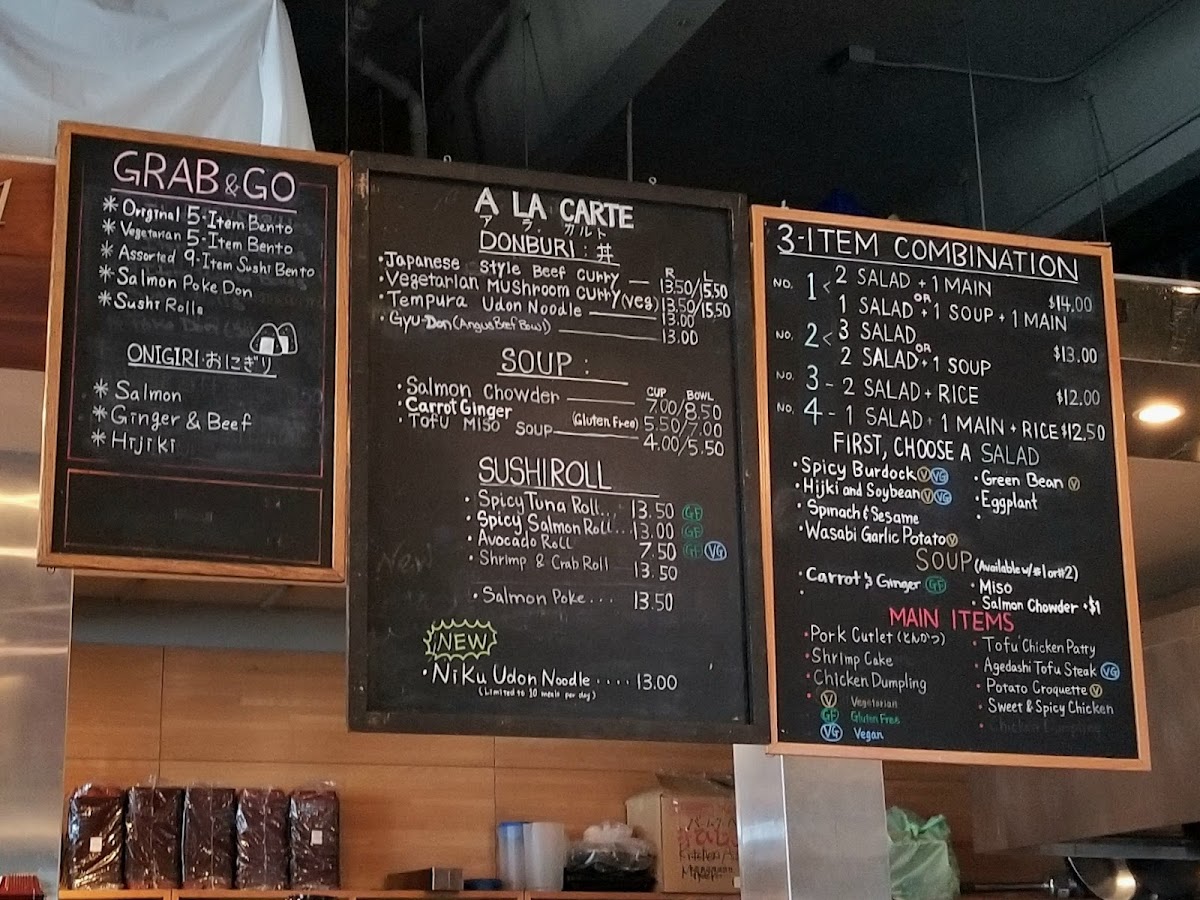 GRAB & GO
* Original 5-Item Bento
* Vegetarian 5-Item Bento
* Assorted 9-Item Sushi Bento
* Salmon Poke Don
* Sushi Rolls
ONIGIRI・おにぎり
* Salmon
* Ginger & Beef
* Hijiki
A LA CARTE
ア ラ カルト
DONBURI : 丼
R L
・Japanese Style Beef Curry — 13.50/15.50
・Vegetarian Mushroom Curry (veg) 13.50/15.50
・Tempura Udon Noodle — 13.00
・Gyu-Don (Angus Beef Bowl) — 13.00
SOUP :
CUP BOWL
・Salmon Chowder — 7.00/8.50
・Carrot Ginger (Gluten Free) 5.50/7.00
・Tofu Miso Soup — 4.00/5.50
SUSHI ROLL
・Spicy Tuna Roll... 13.50 GF
・Spicy Salmon Roll... 13.00 GF
・Avocado Roll 7.50 GF VG
New
・Shrimp & Crab Roll 13.50
・Salmon Poke... 13.50
NEW
・Niku Udon Noodle.... 13.00
(Limited to 10 meals per day)
3-ITEM COMBINATION
NO. 1 < 2 SALAD + 1 MAIN $14.00
OR
1 SALAD + 1 SOUP + 1 MAIN
NO. 2 < 3 SALAD $13.00
OR
2 SALAD + 1 SOUP
NO. 3 - 2 SALAD + RICE $12.00
NO. 4 - 1 SALAD + 1 MAIN + RICE $12.50
FIRST, CHOOSE A SALAD
・Spicy Burdock V VG
・Hijki and Soybean V VG
・Spinach & Sesame
・Wasabi Garlic Potato V
・Green Bean V
・Eggplant
SOUP (Available w/ #1 or #2)
・Carrot & Ginger GF
・Miso
・Salmon Chowder +$1
MAIN ITEMS
・Pork Cutlet (とんかつ)
・Shrimp Cake
・Chicken Dumpling
・Tofu Chicken Patty
・Agedashi Tofu Steak VG
・Potato Croquette V
・Sweet & Spicy Chicken
・Chicken Dumpling
V Vegetarian
GF Gluten Free
VG Vegan